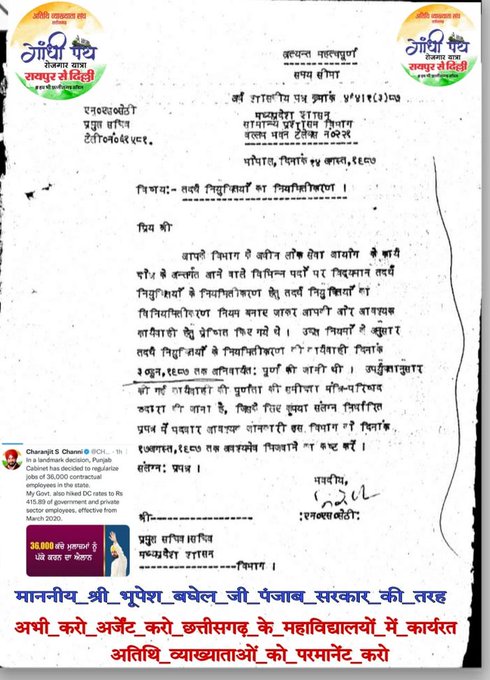 अतिथि व्याख्याता संघ
गांधी पथ
रोजगार यात्रा
रायपुर से दिल्ली
अतिथि व्याख्याता संघ
गांधी पथ
रोजगार यात्रा
रायपुर से दिल्ली
अत्यन्त महत्वपूर्ण
समय सीमा
अर्ध शासकीय पत्र क्रमांक
मध्यप्रदेश शासन
सामान्य प्रशासन विभाग
वल्लभ भवन टेलेक्स नं०२२१
एन०एस०सेठी
प्रमुख सचिव
भोपाल, दिनांक १४ अगस्त, १६८७
विषय:- तदर्थ नियुक्तियों का नियमितीकरण ।
प्रिय श्री
आपके विभाग के अधीन लोक सेवा आयोग के कार्य
क्षेत्र के अन्तर्गत आने वाले विभिन्न पदों पर विद्यमान तदर्थ
नियुक्तियों के नियमितीकरण हेतु तदर्थ नियुक्तियों का
विनियमितीकरण नियम बनाए जाकर आपकी ओर आवश्यक
कार्यवाही हेतु प्रेषित किए गये थे । उक्त नियमों के अनुसार
तदर्थ नियुक्तियों के नियमितीकरण की कार्यवाही दिनांक
३०जून,१६८७ तक अनिवार्यत: पूर्ण की जानी थी । उपर्युक्तानुसार
की गई कार्यवाही की पूर्णता की समीक्षा मंत्रि-परिषद
व्दारा की जाना है, जिसके लिए कृपया संलग्न निर्धारित
प्रपत्र में पदवार आवश्यक जानकारी इस विभाग को दिनांक
१७अगस्त,१६८७ तक अवश्यमेव भिजवाने का कष्ट करें ।
संलग्न: प्रपत्र ।
भवदीय,
:एन०एस०सेठी:
श्री
प्रमुख सचिव ।सचिव
मध्यप्रदेश शासन
विभाग ।
Charanjit S Channi @CH... · 1h
In a landmark decision, Punjab
Cabinet has decided to regularize
jobs of 36,000 contractual
employees in the state.
My Govt. also hiked DC rates to Rs
415.89 of government and private
sector employees, effective from
March 2020.
36,000 ਕੱਚੇ ਮੁਲਾਜ਼ਮਾਂ ਨੂੰ
ਪੱਕੇ ਕਰਨ ਦਾ ਐਲਾਨ
माननीय_श्री_भूपेश_बघेल_जी_पंजाब_सरकार_की_तरह
अभी_करो_अर्जेंट_करो_छत्तीसगढ़_के_महाविद्यालयों_में_कार्यरत
अतिथि_व्याख्याताओं_को_परमानेंट_करो